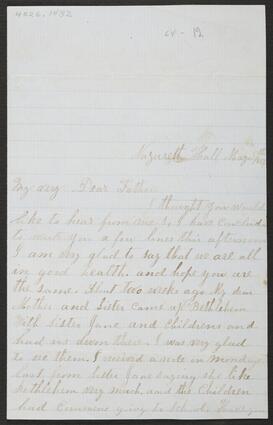 4026.1432
Nazareth Hall May
My very Dear Father
I thought you would
like to hear from me so I have concluded
to write you a few lines this afternoon
I am very glad to say that we are all
in good health, and hope you are
the same. About two weeks ago My dear
Mother and Sister came at Bethlehem
With Sister Jane and Children and
had us down there. I was very glad
to see them. I recived a note in Monday
last, from Sister Jane saying she like
Bethlehem very much, and the Children
had going to School.